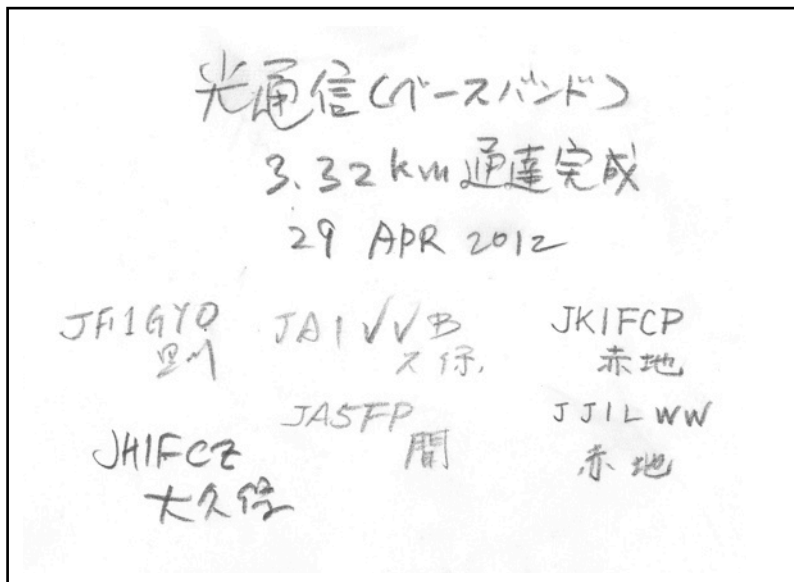 光通信(ベースバンド)
3.32km通達完成
29 APR 2012
JF1GYO JA1VVB JK1FCP
久保 赤地
JA5FP JJ1LWW
JH1FCZ 間 赤地
大久保